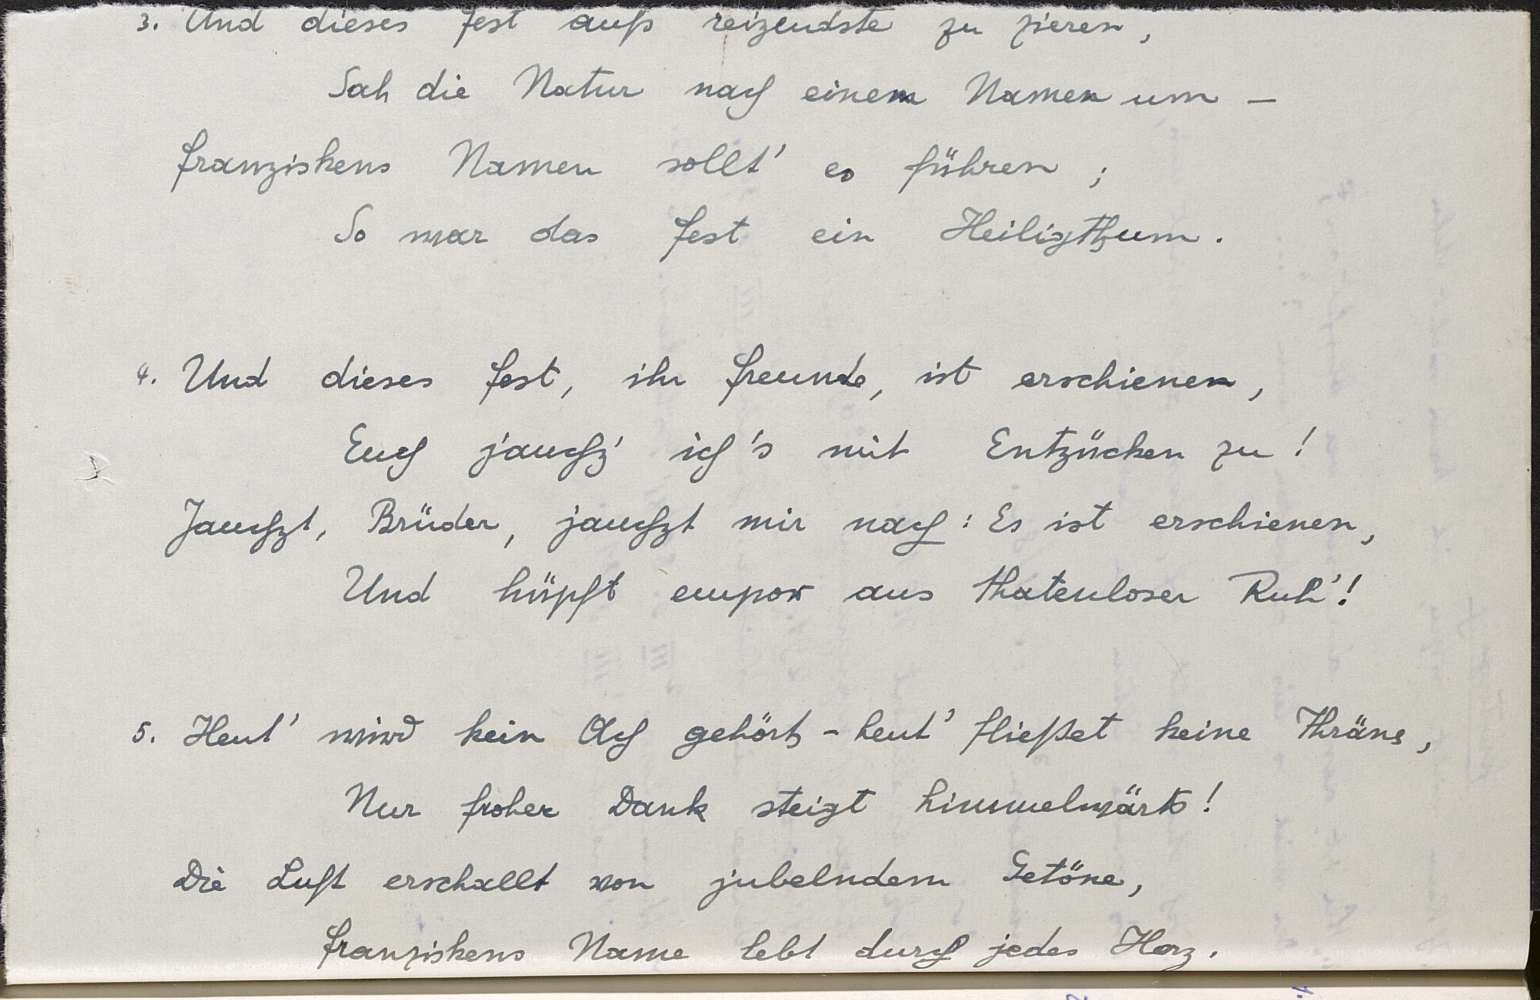 3. Und dieses Fest aufs reizendste zu zieren,
Sah die Natur nach einem Namen um –
Franziskens Namen sollt' es führen;
So war das Fest ein Heiligthum.
4. Und dieses Fest, ihr Freunde, ist erschienen,
Euch jauchz' ich's mit Entzücken zu!
Jauchzt, Brüder, jauchzt mir nach: Es ist erschienen,
Und hüpft empor aus thatenloser Ruh'!
5. Heut' wird kein Ach gehört – heut' fließet keine Thräne,
Nur froher Dank steigt himmelwärts!
Die Luft erschallt von jubelndem Getöne,
Franziskens Name lebt durch jedes Herz.